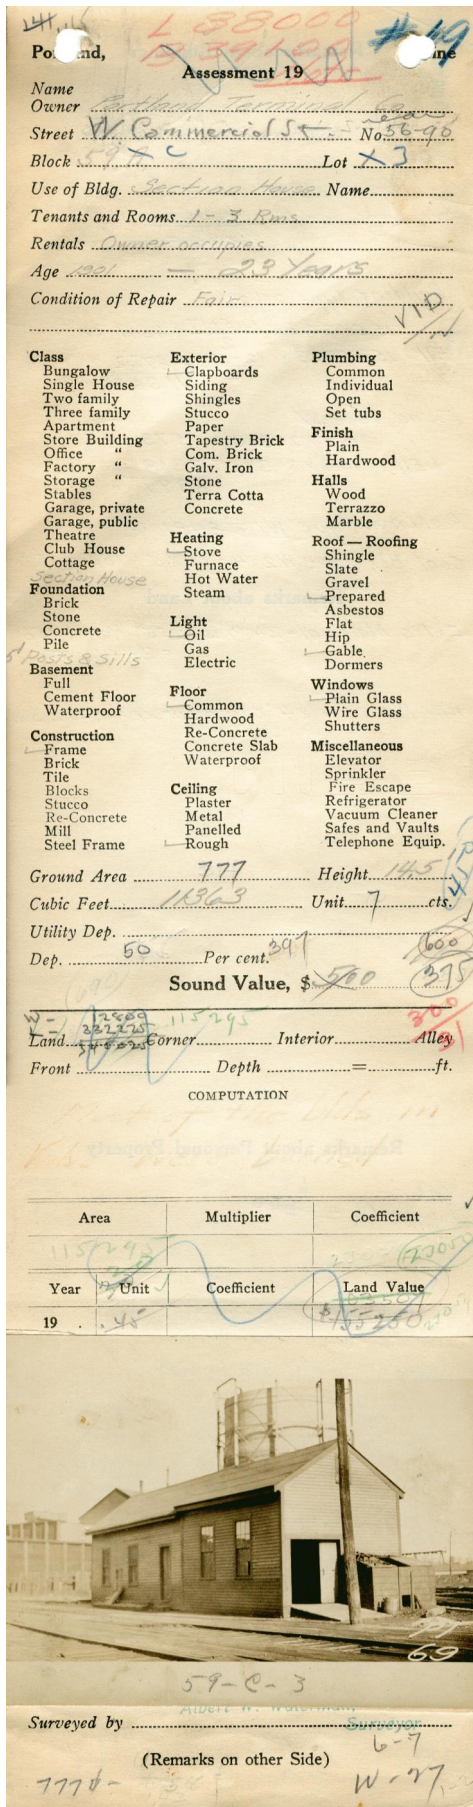 L 38000
B 39100
#49
Assessment 19
Name
Owner Portland Terminal Co
near
Street W Commercial St. No 56-90
Block 59 A X C Lot X 3
Use of Bldg. Section House Name
Tenants and Rooms 1 - 3 Rms
Rentals Owner occupies
Age 1901 — 23 Years
Condition of Repair Fair
Class
Bungalow
Single House
Two family
Three family
Apartment
Store Building
Office "
Factory "
Storage "
Stables
Garage, private
Garage, public
Theatre
Club House
Cottage
Section House
Foundation
Brick
Stone
Concrete
Pile
Posts & Sills
Basement
Full
Cement Floor
Waterproof
Construction
Frame
Brick
Tile
Blocks
Stucco
Re-Concrete
Mill
Steel Frame
Exterior
Clapboards
Siding
Shingles
Stucco
Paper
Tapestry Brick
Com. Brick
Galv. Iron
Stone
Terra Cotta
Concrete
Heating
Stove
Furnace
Hot Water
Steam
Light
Oil
Gas
Electric
Floor
Common
Hardwood
Re-Concrete
Concrete Slab
Waterproof
Ceiling
Plaster
Metal
Panelled
Rough
Plumbing
Common
Individual
Open
Set tubs
Finish
Plain
Hardwood
Halls
Wood
Terrazzo
Marble
Roof — Roofing
Shingle
Slate
Gravel
Prepared
Asbestos
Flat
Hip
Gable
Dormers
Windows
Plain Glass
Wire Glass
Shutters
Miscellaneous
Elevator
Sprinkler
Fire Escape
Refrigerator
Vacuum Cleaner
Safes and Vaults
Telephone Equip.
Ground Area 777 Height 14.5
Cubic Feet 11363 Unit 7 cts.
Utility Dep.
600
Dep. 50 Per cent. 397
375
Sound Value, $ 500
300
115295
Land Corner Interior Alley
Front Depth = ft.
COMPUTATION
Area Multiplier Coefficient
115295
Year Unit Coefficient Land Value
19 . .45
69
59-C-3
Albert W. Waterman
Surveyed by Surveyor
6-7
(Remarks on other Side)
777 W-27